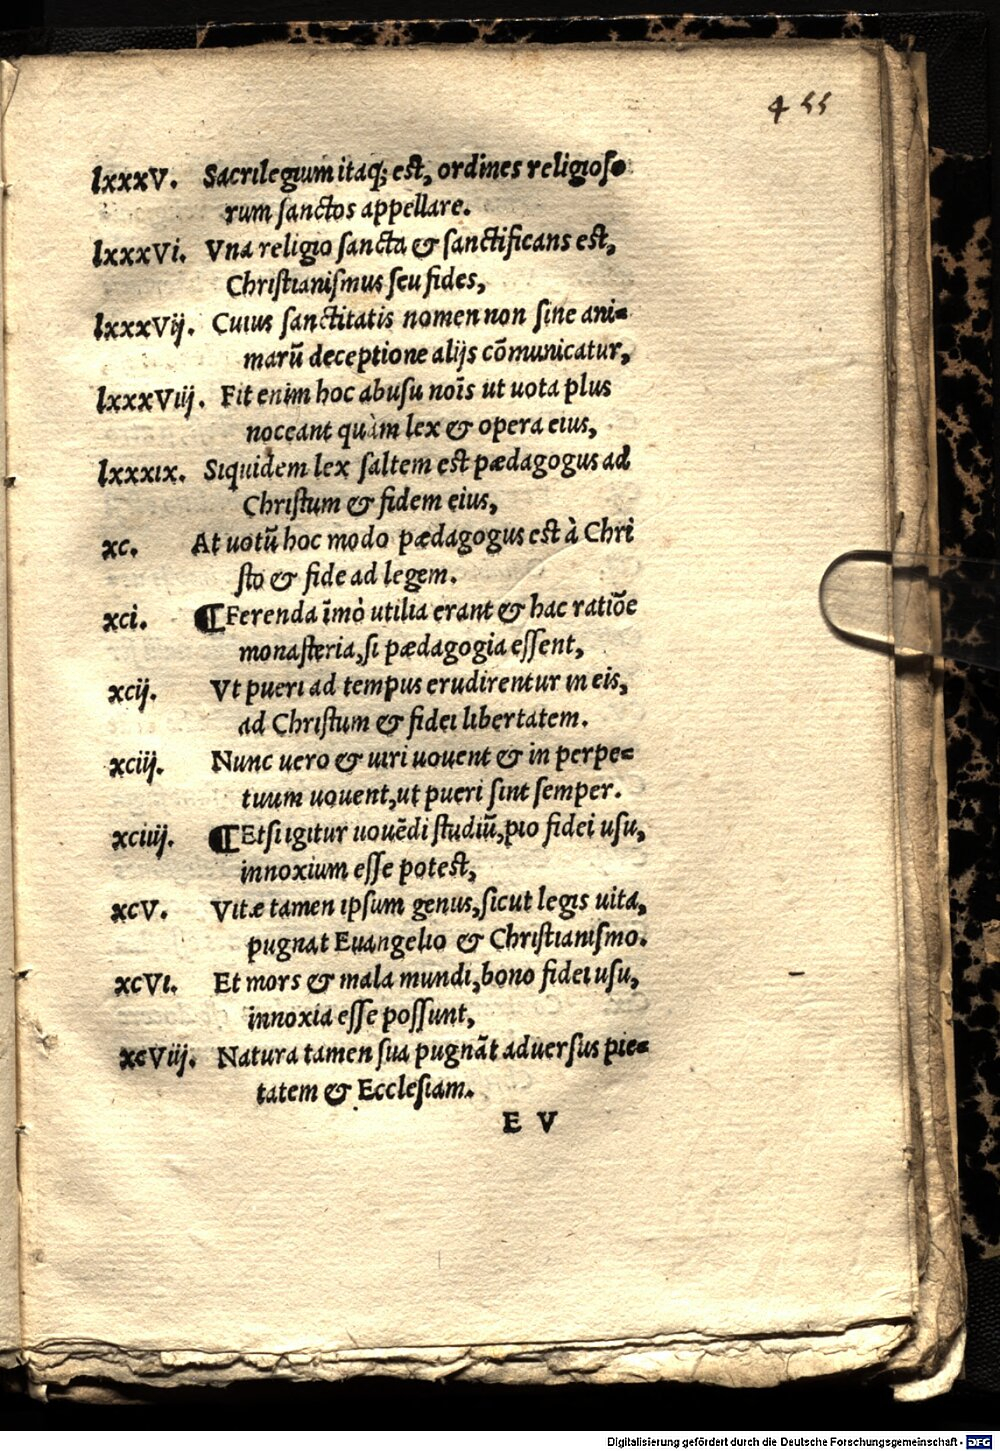 455
lxxxV. Sacrilegium itaq; est, ordines religioso
rum sanctos appellare.
lxxxVi. Vna religio sancta & sanctificans est,
Christianismus seu fides,
lxxxVij. Cuius sanctitatis nomen non sine ani=
marū deceptione alijs cōmunicatur,
lxxxViij. Fit enim hoc abusu noīs ut uota plus
noceant quàm lex & opera eius,
lxxxix. Siquidem lex saltem est pædagogus ad
Christum & fidem eius,
xc. At uotū hoc modo pædagogus est à Chri
sto & fide ad legem.
xci. ¶Ferenda īmò utilia erant & hac ratiōe
monasteria, si pædagogia essent,
xcij. Vt pueri ad tempus erudirentur in eis,
ad Christum & fidei libertatem.
xciij. Nunc uero & uiri uouent & in perpe=
tuum uouent, ut pueri sint semper.
xciiij. ¶Etsi igitur uouēdi studiū, pio fidei usu,
innoxium esse potest,
xcV. Vitæ tamen ipsum genus, sicut legis uita,
pugnat Euangelio & Christianismo.
xcVi. Et mors & mala mundi, bono fidei usu,
innoxia esse possunt,
xcViij. Natura tamen sua pugnāt aduersus pie=
tatem & Ecclesiam.
E V
Digitalisierung gefördert durch die Deutsche Forschungsgemeinschaft - DFG